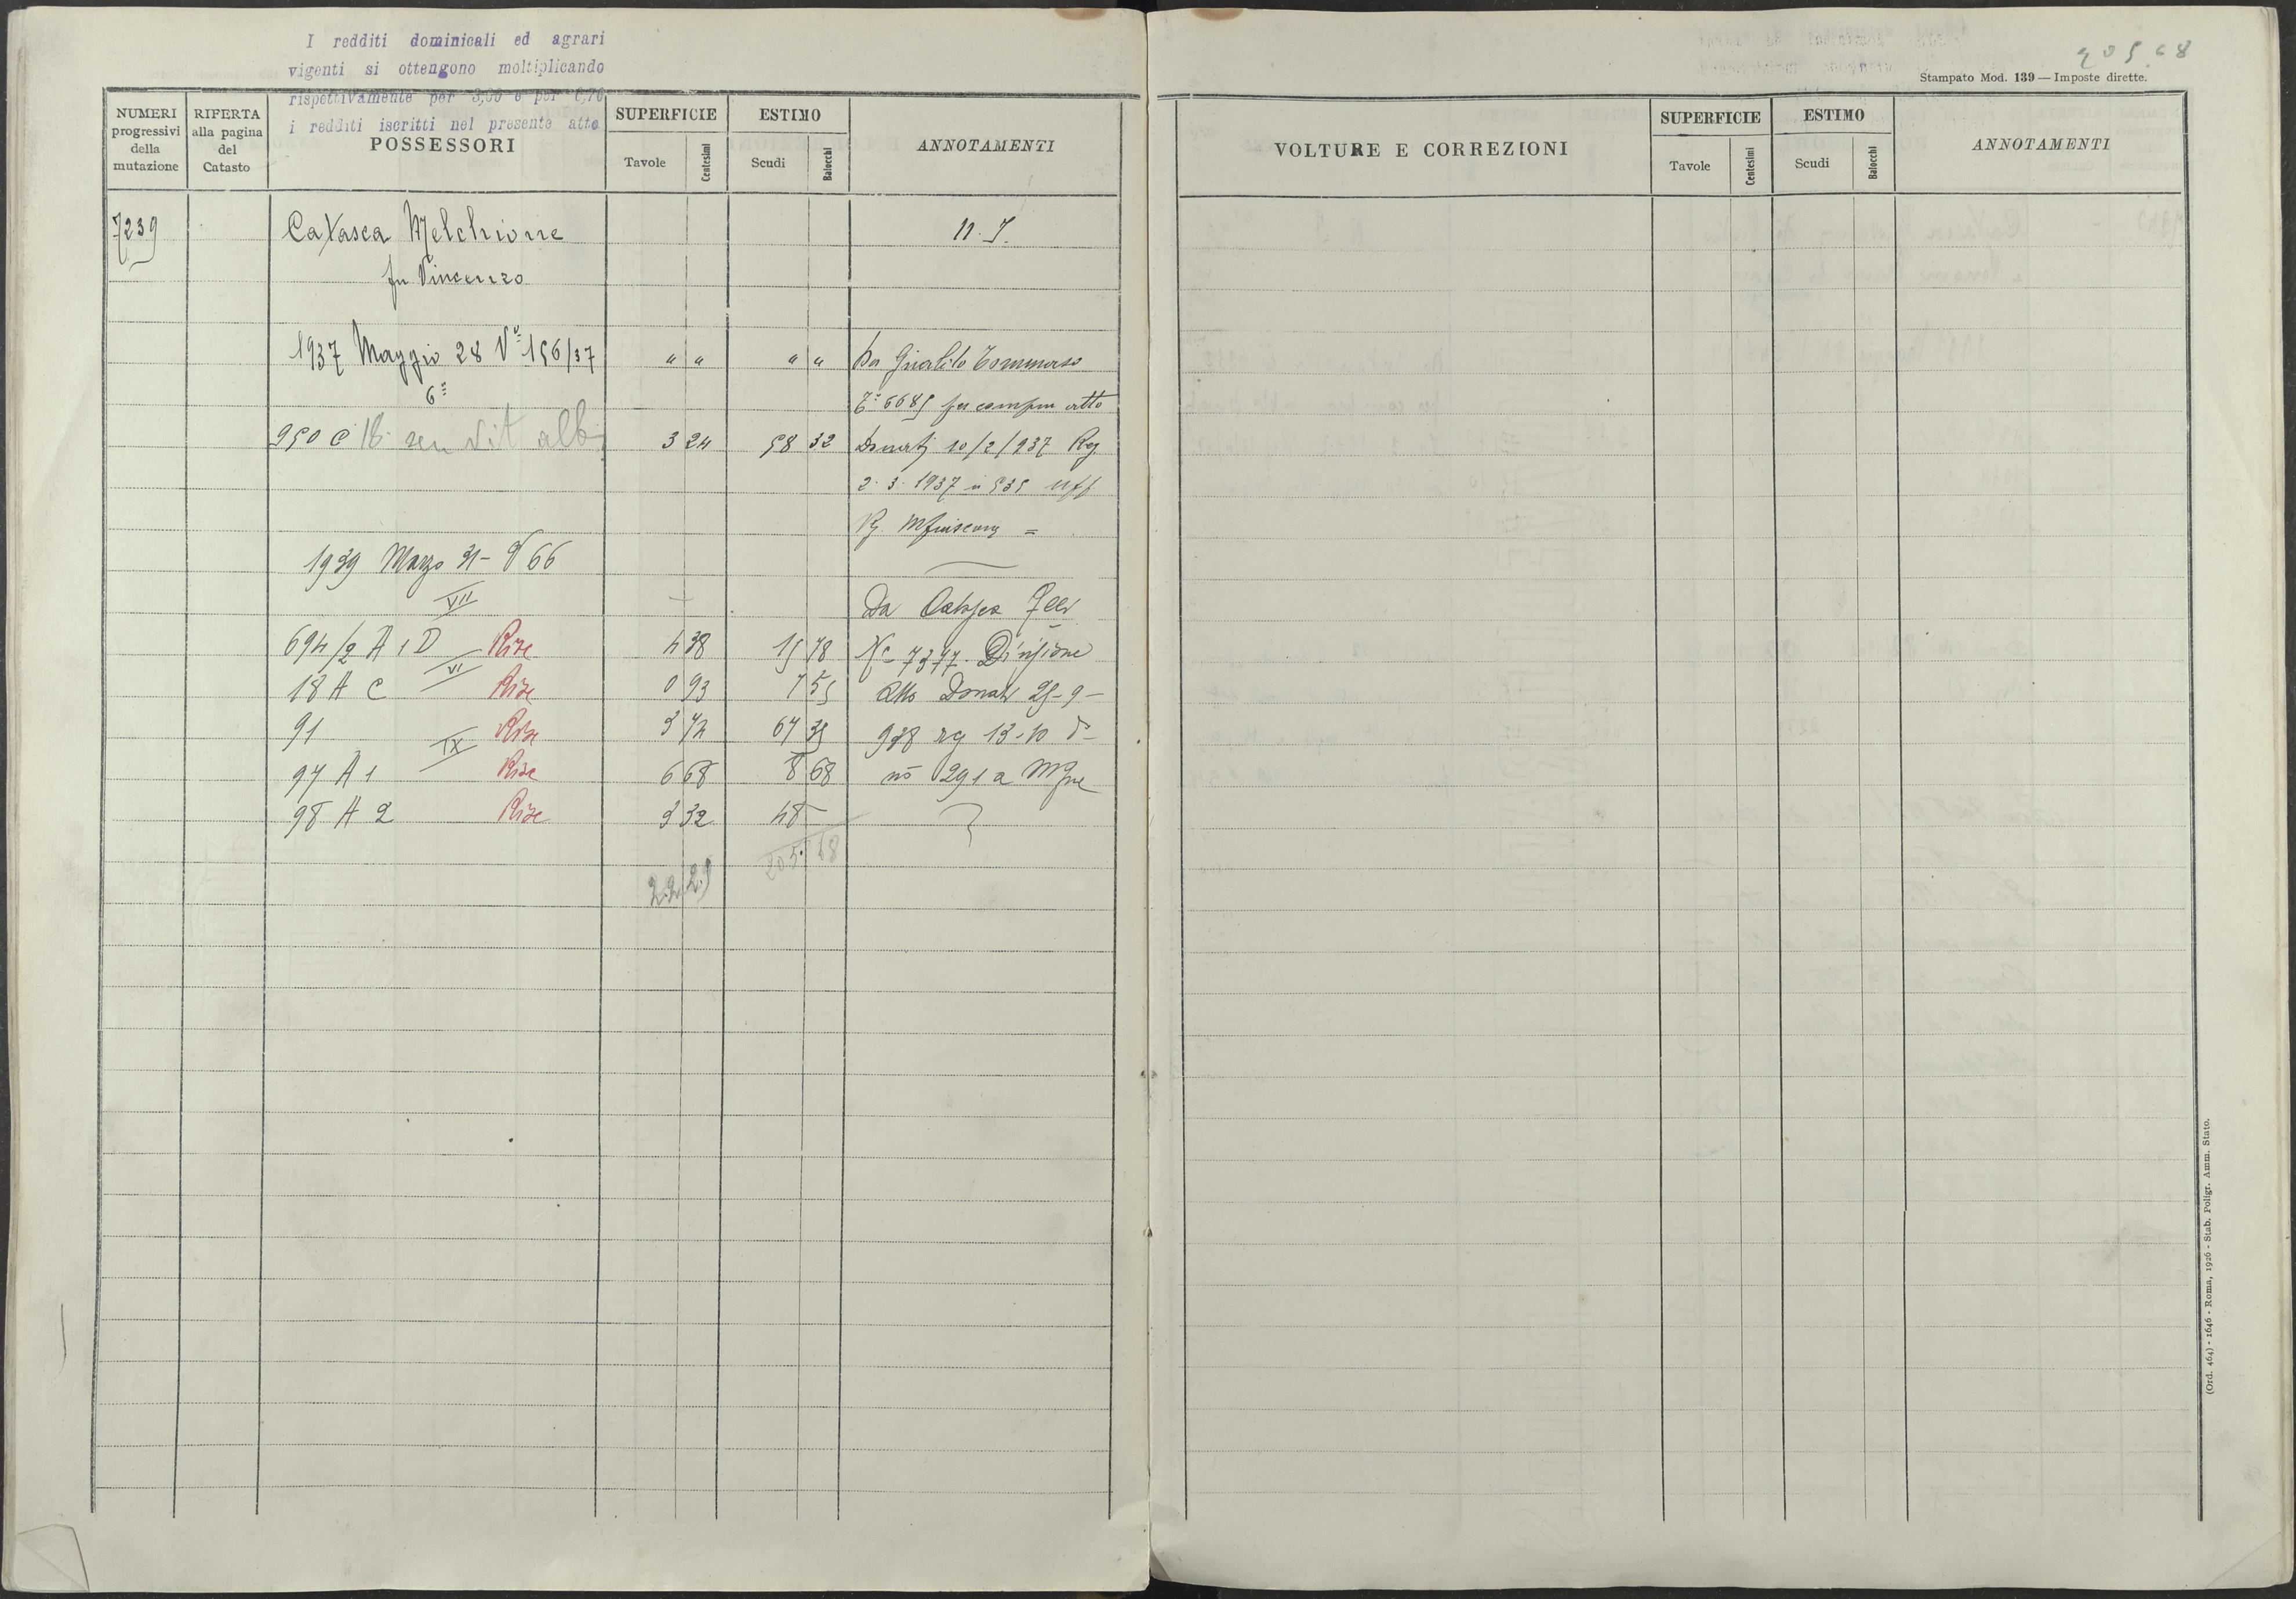 I redditi dominicali ed agrari
vigenti si ottengono moltiplicando
rispettivamente per 3,05 e per 6,76
i redditi iscritti nel presente atto
205.68
Stampato Mod. 139 — Imposte dirette.
NUMERI progressivi della mutazione
RIFERTA alla pagina del Catasto
POSSESSORI
SUPERFICIE
Tavole
Centesimi
ESTIMO
Scudi
Baiocchi
ANNOTAMENTI
VOLTURE E CORREZIONI
SUPERFICIE
Tavole
Centesimi
ESTIMO
Scudi
Baiocchi
ANNOTAMENTI
7239 Melchiorre
fu Vincenzo
1937 Maggio 28 Vª 156/37 " " " " Da Tommaso
6ª 6685 per atto
950 C 3 24 58 32 Donati 10/2/937 Reg.
2.3.1937 n 535 uff
1939 Marzo 31 - 66
VII Da
694/2 A 1 D Rise 4 38 15 78 Divisione
VI
18 A C Rise 0 93 7 55 atto Donati 25-9-
91 Rise 3 74 67 35 938 rg 13-10
IX
97 A 1 Rise 6 68 8 68 no 291 a
98 A 2 Rise 3 32 48 -
205.68
22 29
(Ord. 464) - 1646 - Roma, 1926 - Stab. Poligr. Amm. Stato.